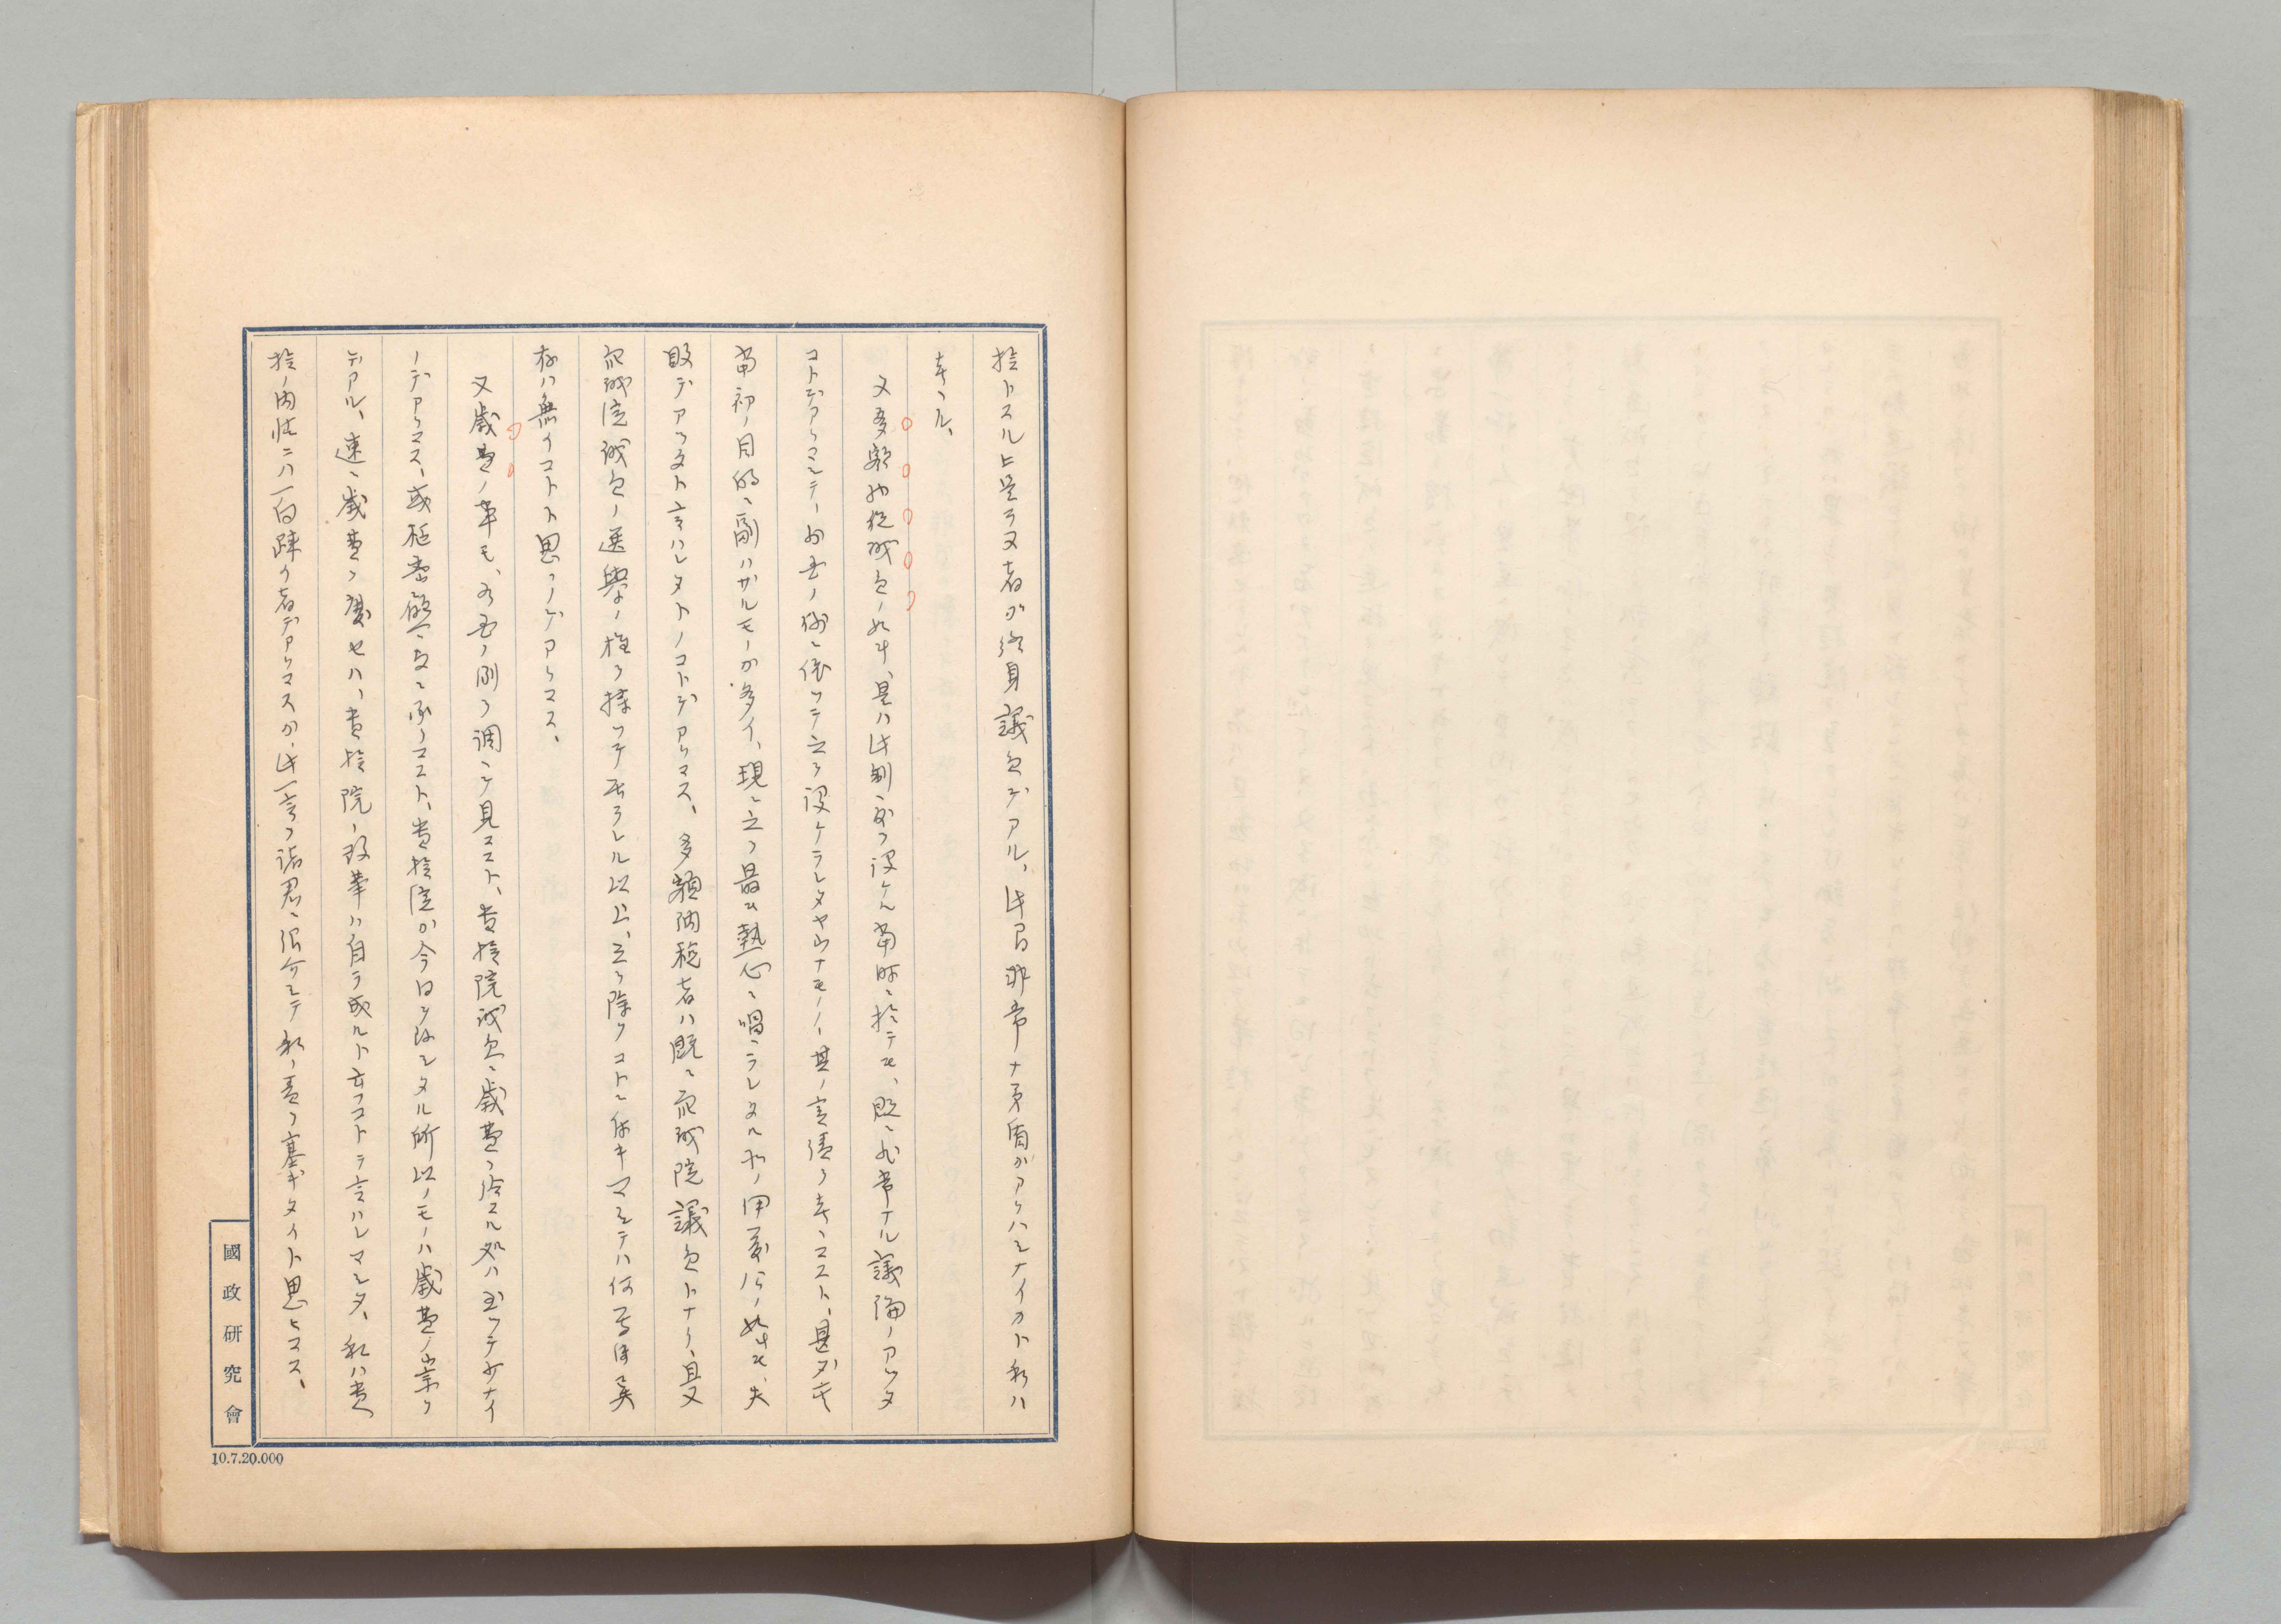 族トスルト是ラヌ者が終身議員デアル、此間非常ナ矛盾ガアリハシナイカト私ハ
考ヘル、
又多額納税議員ノ如キ、是ハ此制度ヲ設ケル当時ニ於テモ、既ニ非常ナル議論ノアツタ
コトデアリマシテ、外国ノ例ニ依ツテ之ヲ設ケラレタヤウナモノノ、其ノ実績ヲ考ヘマスト、甚ダ
当初ノ目的ニ副ハザルモノが多イ、現ニ之ヲ最モ熱心ニ唱ヘラレタル所ノ伊藤公ノ如キモ、失
敗デアツタト言ハレタトノコトデアリマス、多額納税者ハ既ニ衆議院議員トナリ、且又
衆議院議員ノ選挙ノ権ヲ持ツテ居ラレル以上、之ヲ除クコトニ付キマシテハ何等異
存ハ無イコトト思フノデアリマス、
又歳費ノ事モ、各国ノ例ヲ調ベテ見マスト、貴族院議員ニ歳費ヲ給スル処ハ至ツテ少ナイ
ノデアリマス、或枢密顧問官ニ承リマスト、貴族院が今日ヲ致シタル所以ノモノハ歳費ノ
デアル、速ニ歳費ヲ廃セバ、貴族院ノ改革ハ自ラ成ルト云フコトヲ言ハレマシタ、私ハ貴
族ノ内情ニハ一向疎イ者デアリマスガ、此一言ヲ諸君ニ紹介シテ私ノ責ヲ塞ギタイト思ヒマス、
國政研究會
10.7.20.000